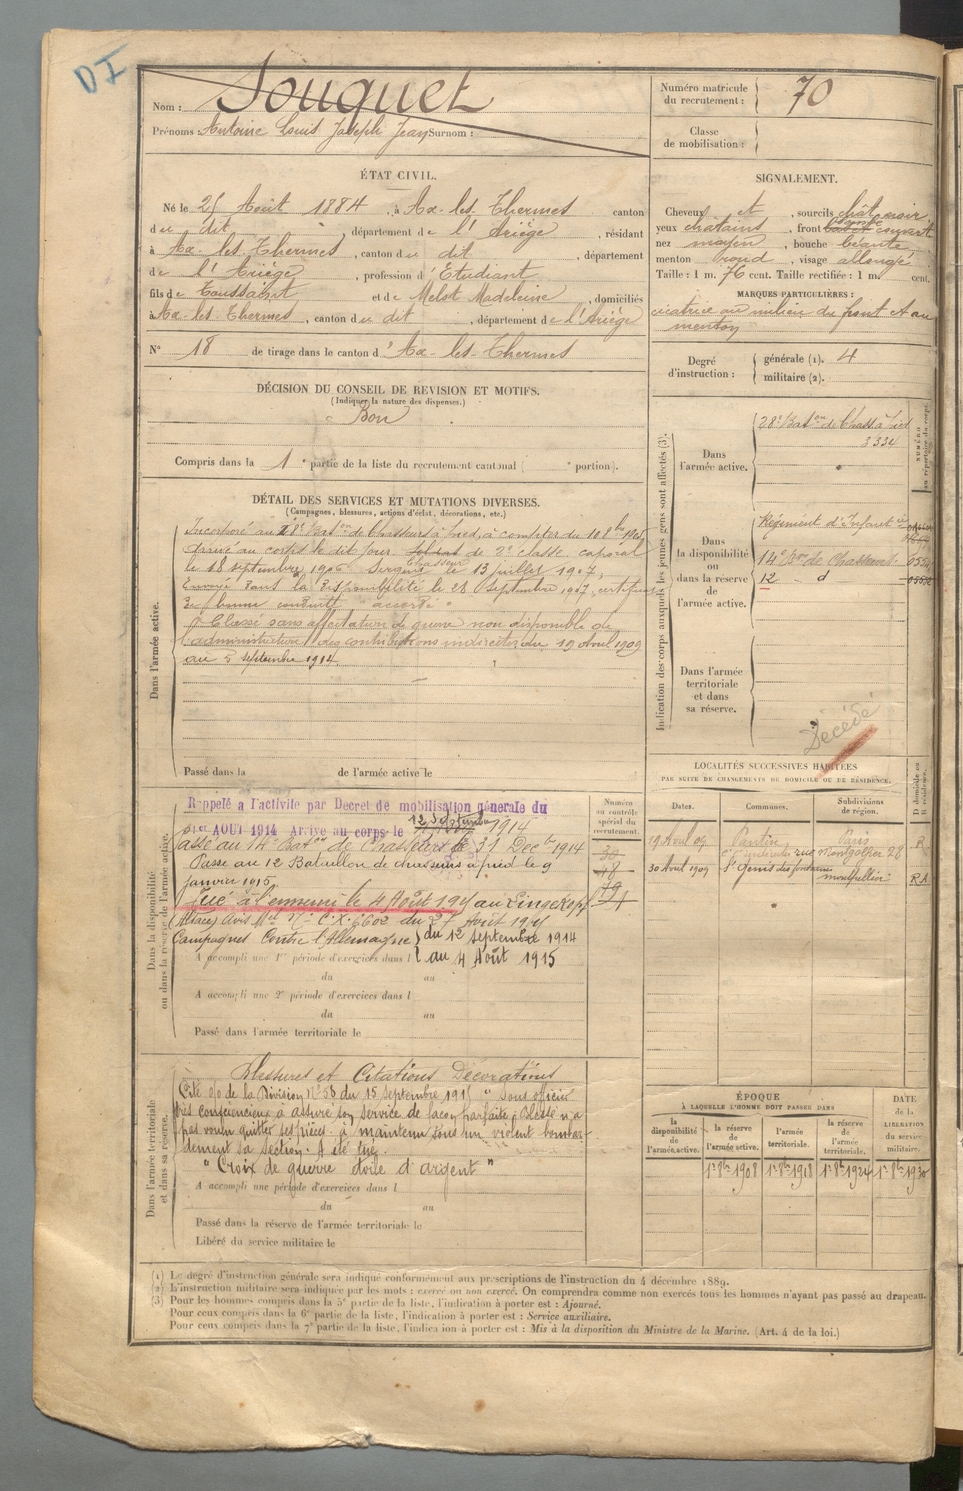 DI
Nom : Souquet
Prénoms : Antoine Louis Joseph Jean Surnom :
Numéro matricule du recrutement : 70
Classe de mobilisation :
ÉTAT CIVIL.
Né le 25 Août 1884, à Ax-les-Thermes canton
du dit, département de l'Ariège, résidant
à Ax-les-Thermes, canton du dit, département
de l'Ariège, profession d'Etudiant
fils de Toussaint et de Melot Madeleine, domiciliés
à Ax-les-Thermes, canton du dit, département de l'Ariège
N° 18 de tirage dans le canton d'Ax-les-Thermes
SIGNALEMENT.
Cheveux et, sourcils chât noir
yeux chatains, front couvert
nez moyen, bouche béante
menton rond, visage allongé
Taille : 1 m. 76 cent. Taille rectifiée : 1 m. cent.
MARQUES PARTICULIÈRES :
cicatrice au milieu du front et au
menton
Degré d'instruction : générale (1). 4
militaire (2).
DÉCISION DU CONSEIL DE REVISION ET MOTIFS.
(Indiquer la nature des dispenses.)
Bon
Compris dans la 1e partie de la liste du recrutement cantonal ( e portion).
DÉTAIL DES SERVICES ET MUTATIONS DIVERSES.
(Campagnes, blessures, actions d'éclat, décorations, etc.)
Dans l'armée active.
Incorporé au 28e Baton de Chasseurs à Pied, à compter du 10 8bre 1905
Arrivé au corps le dit jour. soldat Chasseur de 2e classe. caporal
le 18 septembre 1906. Sergent le 13 juillet 1907.
Envoyé dans la disponibilité le 28 septembre 1907, certificat
de bonne conduite "accordé"
Classé sans affectation de guerre non disponible de
l'administration des contributions indirectes du 19 Avril 1909
au 5 septembre 1914
Passé dans la de l'armée active le
Indication des corps auxquels les jeunes gens sont affectés (3).
Dans l'armée active.
28e Baton de Chass. à Pied
3334
NUMÉRO au répertoire du corps.
Dans la disponibilité ou dans la réserve de l'armée active.
Régiment d'Infanterie
14e Bon de Chasseurs
12 - d
Dans l'armée territoriale et dans sa réserve.
Décédé
LOCALITÉS SUCCESSIVES HABITÉES
PAR SUITE DE CHANGEMENTS DE DOMICILE OU DE RÉSIDENCE.
D domicile ou R résidence.
Dates. Communes. Subdivisions de région.
19 Avril 09 Pantin Paris R
rue Montgolfier 28
30 Avril 1909 St Genis des fontaines montpellier RA
Dans la disponibilité ou dans la réserve de l'armée active.
Numéro au contrôle spécial du recrutement.
Rappelé à l'activité par Decret de mobilisation générale du
1er AOUT 1914 Arrivé au corps le 12 Septembre 1914
Passé au 14e Baton de Chasseurs le 31 Decbre 1914
Passe au 12 Bataillon de chasseurs à pied le 9
janvier 1915
Tué à l'ennemi le 4 Août 1915 au Lingekopf
(Alsace) Avis Mel N° C.X. 6602 du 25 Août 1915
Campagnes Contre l'Allemagne du 12 septembre 1914
au 4 Août 1915
A accompli une 1re période d'exercices dans l
du au
A accompli une 2e période d'exercices dans l
du au
Passé dans l'armée territoriale le
Dans l'armée territoriale et dans sa réserve.
Blessures et Citations Décorations
Cité o/o de la Division n° 58 du 15 septembre 1915 "Sous officier
très consciencieux a assuré son service de façon parfaite. Blessé n'a
pas voulu quitter ses pièces. à maintenu sous un violent bombar-
dement sa section. A été tué.
"Croix de guerre étoile d'argent"
A accompli une période d'exercices dans l
du au
Passé dans la réserve de l'armée territoriale le
Libéré du service militaire le
ÉPOQUE
À LAQUELLE L'HOMME DOIT PASSER DANS
DATE de la LIBÉRATION du service militaire.
la disponibilité de l'armée active. la réserve de l'armée active. l'armée territoriale. la réserve de l'armée territoriale.
1r 8bre 1908 1r 8bre 1918 1r 8bre 1924 1r 8bre 1930
(1) Le degré d'instruction générale sera indiqué conformément aux prescriptions de l'instruction du 4 décembre 1889.
(2) L'instruction militaire sera indiquée par les mots : exercé ou non exercé. On comprendra comme non exercés tous les hommes n'ayant pas passé au drapeau.
(3) Pour les hommes compris dans la 5e partie de la liste, l'indication à porter est : Ajourné.
Pour ceux compris dans la 6e partie de la liste, l'indication à porter est : Service auxiliaire.
Pour ceux compris dans la 7e partie de la liste, l'indication à porter est : Mis à la disposition du Ministre de la Marine. (Art. 4 de la loi.)